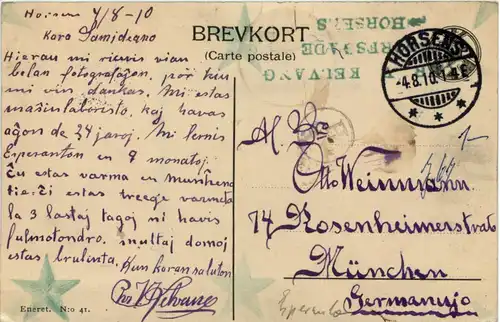 Horsens 4/8-10
Kara Samideano
Hierau mi ricevis vian
belan fotografaĵon, por kiu
mi vin dankas. Mi estas
maŝinlaboristo, kaj havas
aĝon de 34 jaroj. Mi lernis
Esperanton en 9 monatoj.
Ĉu estas varma en
tie ĉi estas treege varmeta
la 3 lastaj tagoj ni havis
fulmotondro, multaj domoj
estas brulenta. Kun koran saluton
BREVKORT
(Carte postale)
KELVANG
HORSENS
HORSENS
4.8.10
Al
Otto Weinmann.
74 Rosenheimerstrat
München
Germanujo
Eneret. N:o 41.